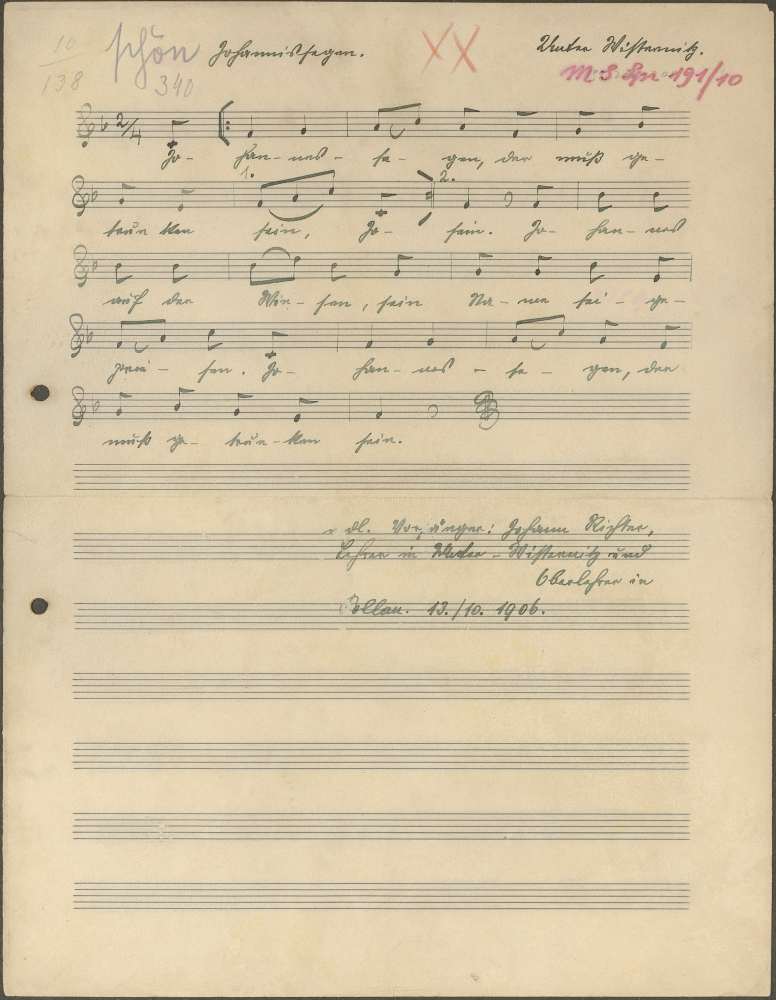 10
138
schön
340
Johannissegen.
XX
Unter Wisternitz.
M. S. Spr 191/10
2/4
Jo- han-nes- se- gen, der muß ge-
1. 2.
trun ken sein, Jo- sein. Jo- han- nes
auf der Wie- sen, sein Na- me sei- ge-
prie- sen. Jo- han- nes- se- gen, der
muß ge- trun-ken sein.
dl. Vorsänger: Johann Richter,
Lehrer in Unter-Wisternitz und
Oberlehrer in
Pollau. 13./10. 1906.